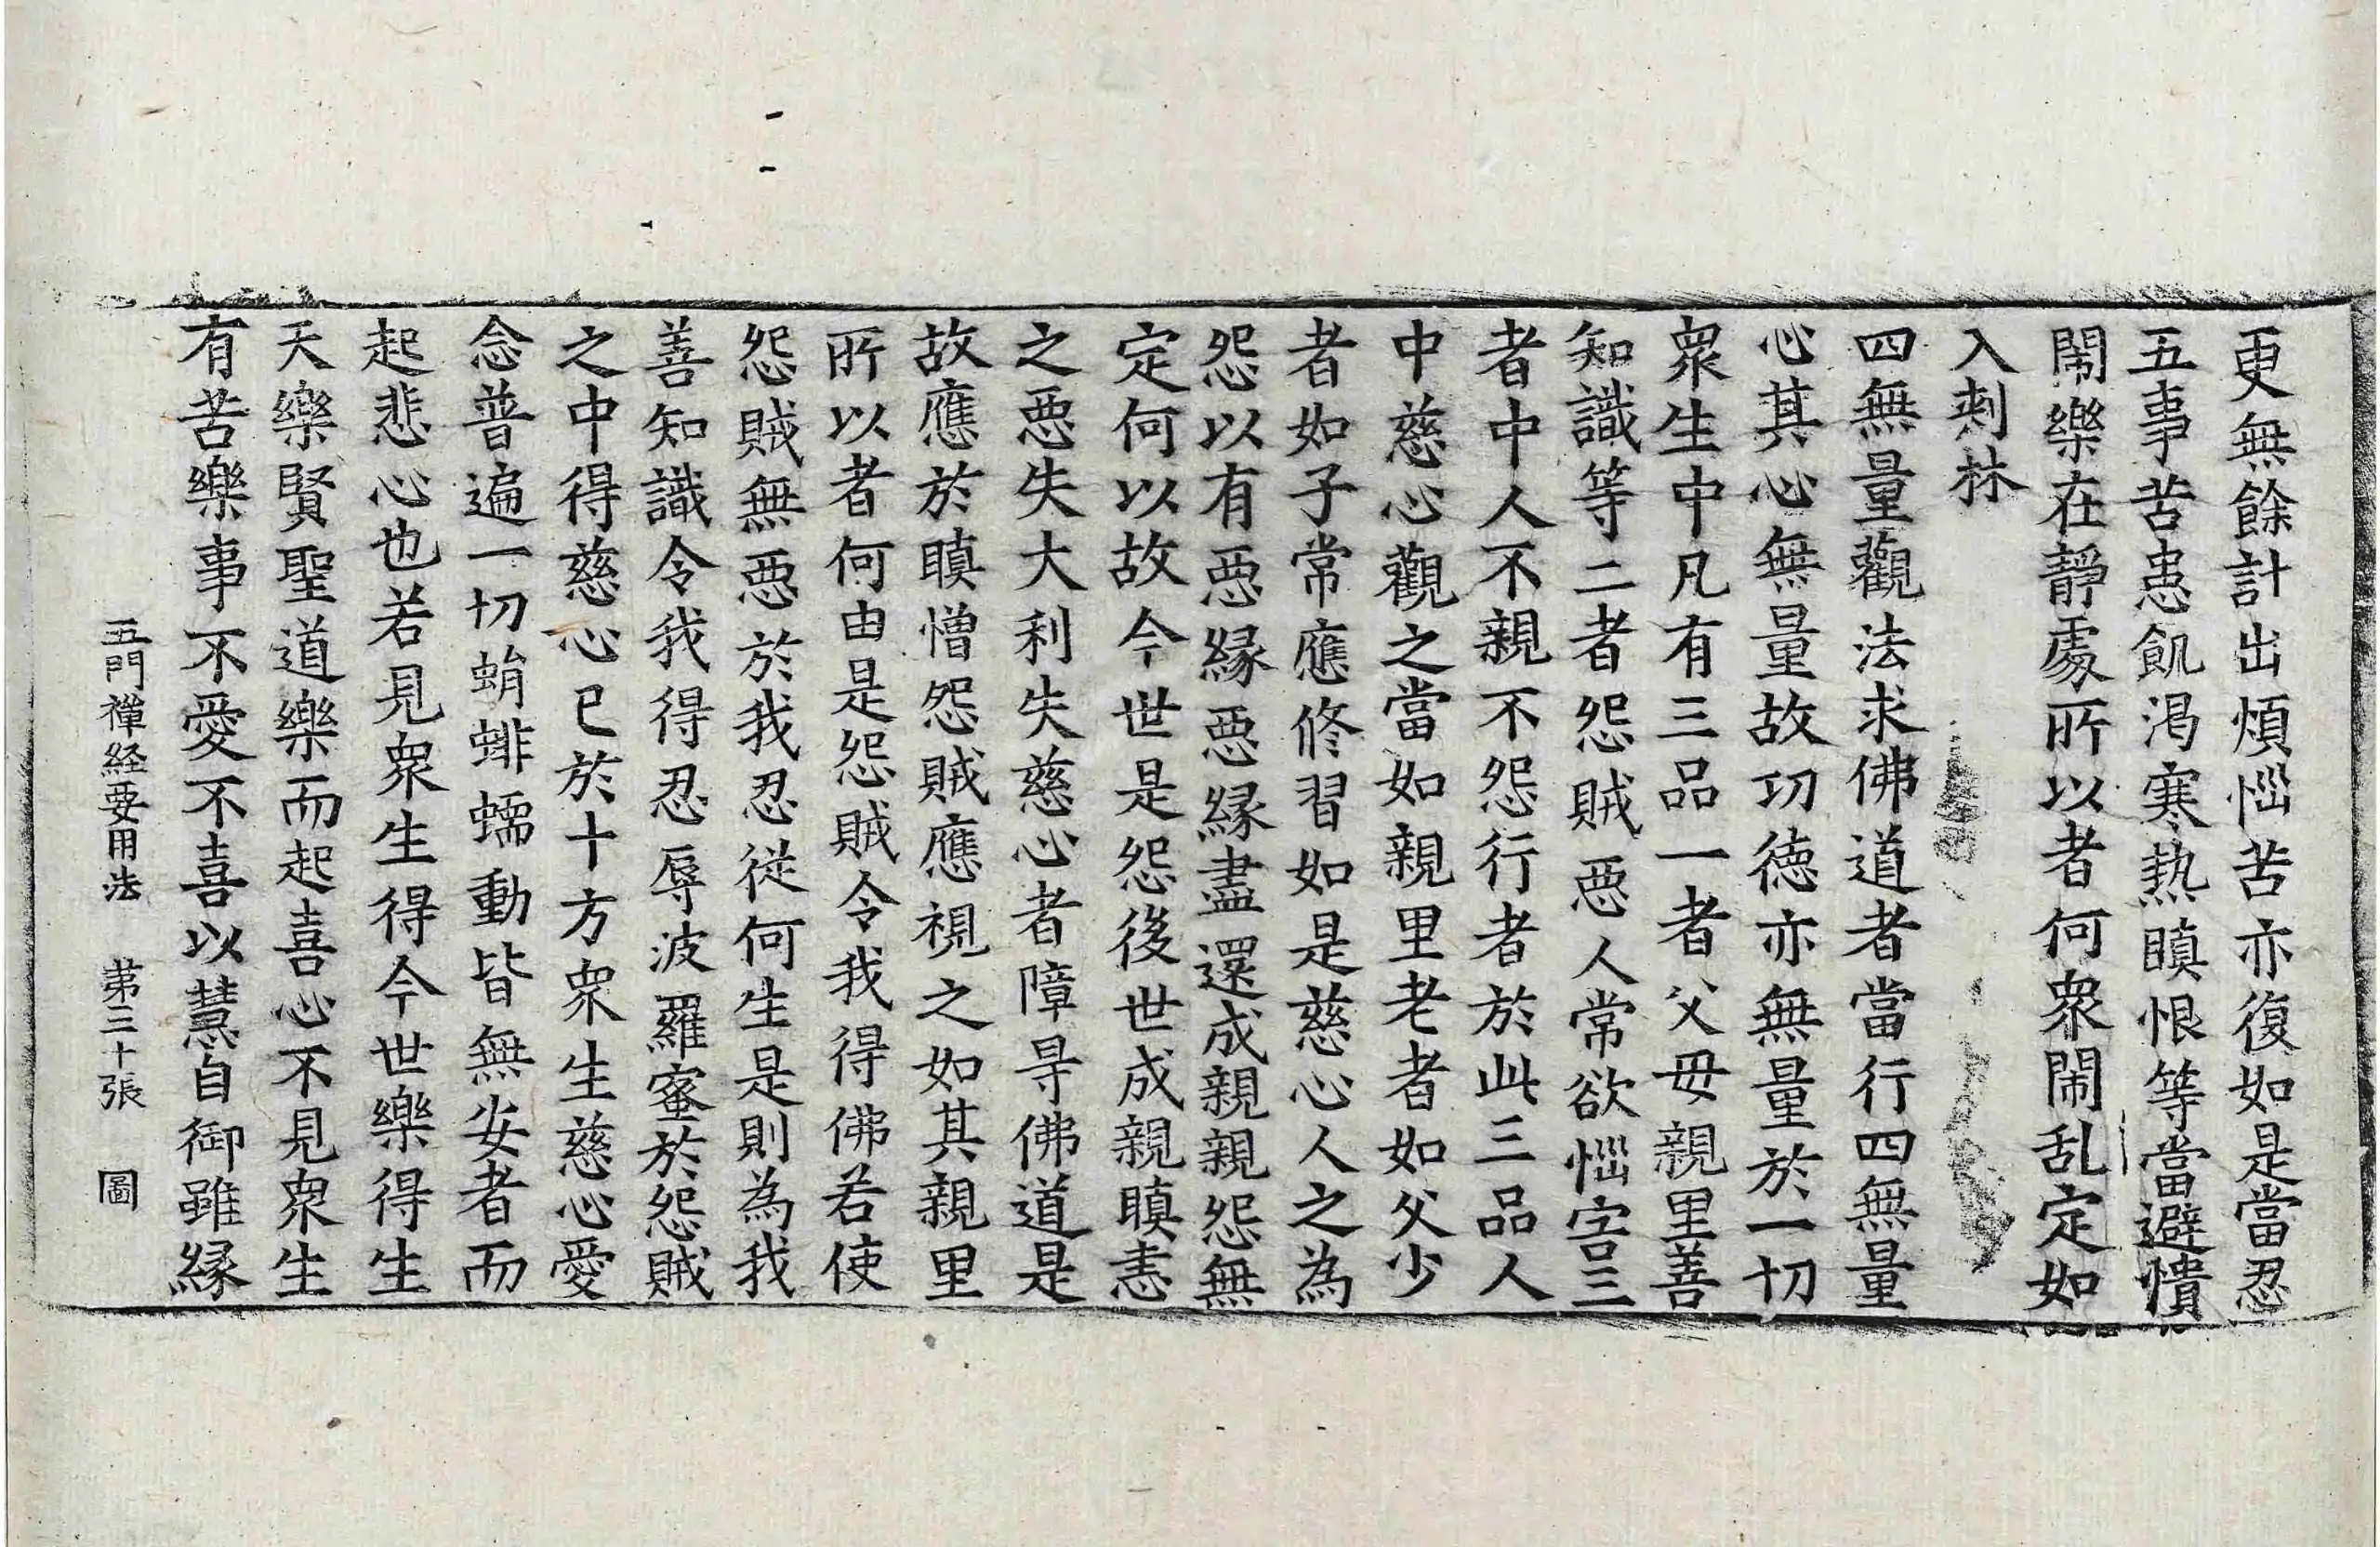 更無餘計出煩惱苦亦復如是當忍
五事苦患飢渴寒熱瞋恨等當避憒
鬧樂在靜處所以者何衆鬧乱定如
入刺林
四無量觀法求佛道者當行四無量
心其心無量故功德亦無量於一切
衆生中凡有三品一者父母親里善
知識等二者怨賊惡人常欲惱害三
者中人不親不怨行者於此三品人
中慈心觀之當如親里老者如父少
者如子常應修習如是慈心人之為
怨以有惡緣惡緣盡還成親親怨無
定何以故今世是怨後世成親瞋恚
之惡失大利失慈心者障㝵佛道是
故應於瞋憎怨賊應視之如其親里
所以者何由是怨賊令我得佛若使
怨賊無惡於我忍從何生是則為我
善知識令我得忍辱波羅蜜於怨賊
之中得慈心已於十方衆生慈心愛
念普遍一切蛸蜚蠕動皆無安者而
起悲心也若見衆生得今世樂得生
天樂賢聖道樂而起喜心不見衆生
有苦樂事不愛不喜以慧自御雖緣
五門禪経要用法 第三十張 圖